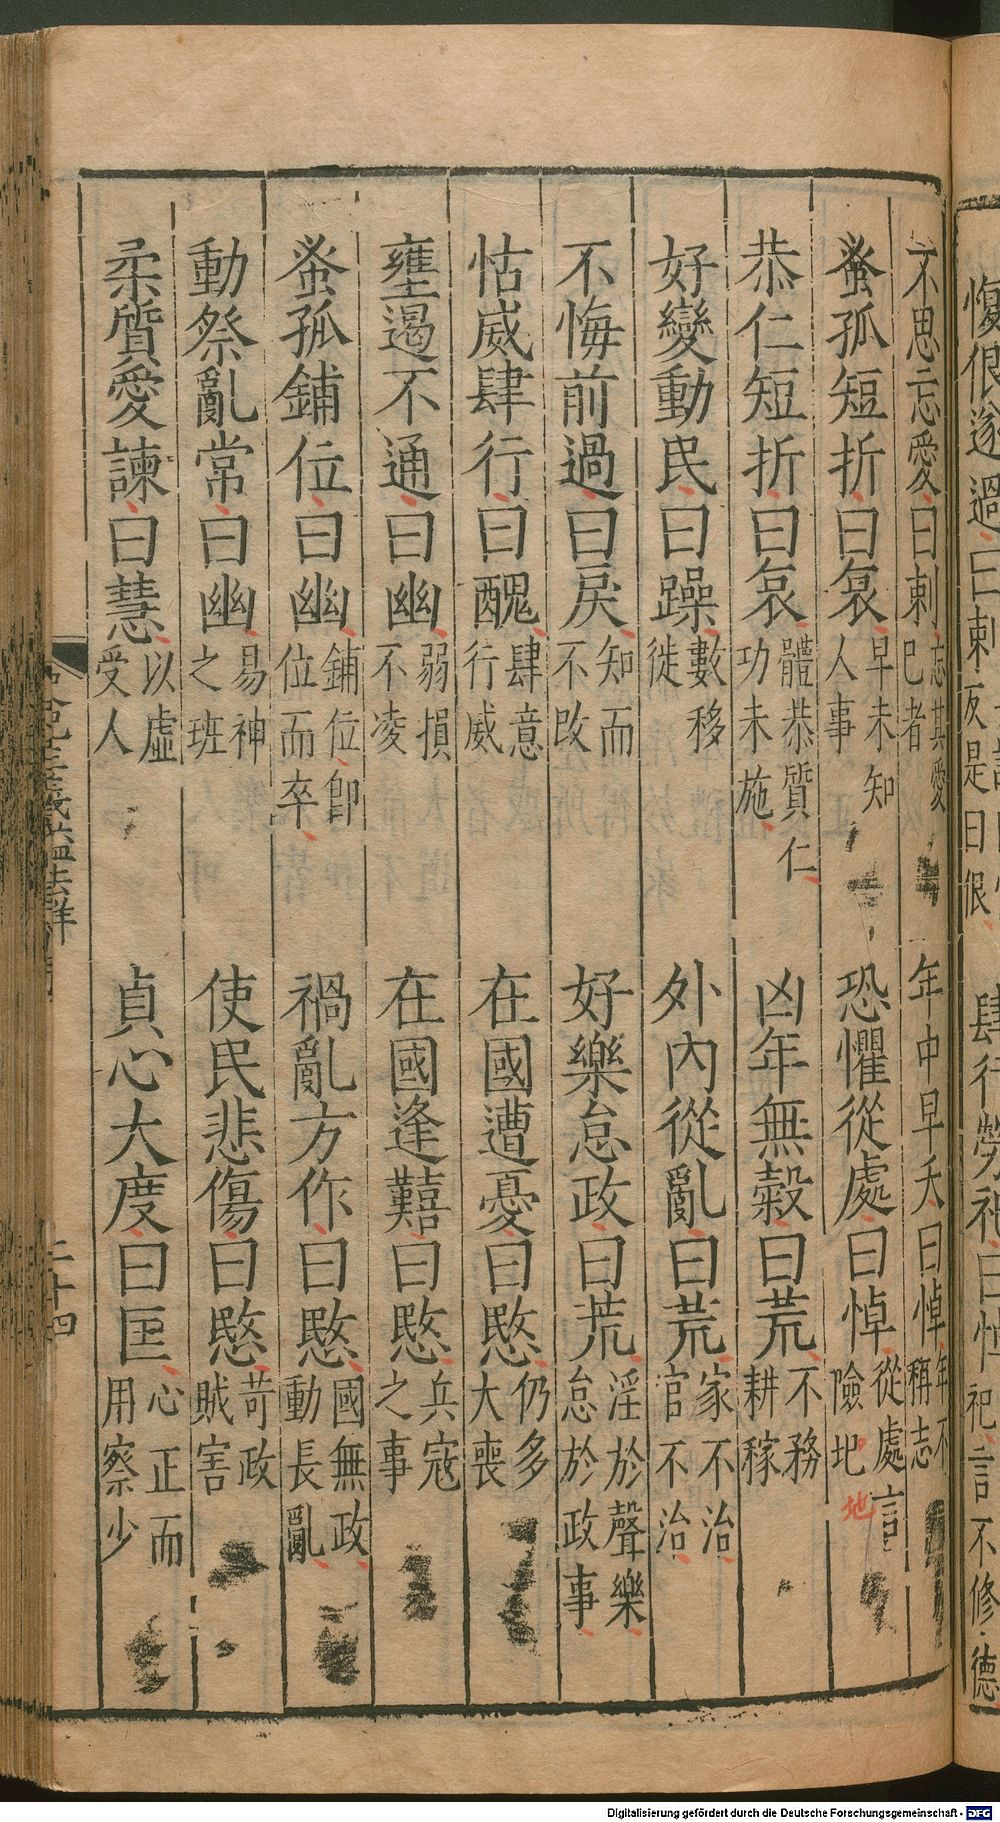 愎佷遂過曰刺反是曰佷 肆行勞祀曰悼祀言不修德
不思忘愛曰刺忘其愛已者 年中早夭曰悼年不稱志
蚤孤短折曰哀早未知人事 恐懼從處曰悼從處言險圯地
恭仁短折曰哀體恭質仁功未施 凶年無榖曰荒不務耕稼
好變動民曰躁數移徙 外內從亂曰荒家不治官不治
不悔前過曰戾知而不改 好樂怠政曰荒淫於聲樂怠於政事
怙威肆行曰醜肆意行威 在國遭憂曰愍仍多大喪
壅遏不通曰幽弱損不凌 在國逢囏曰愍兵寇之事
蚤孤鋪位曰幽鋪位卽位而卒 禍亂方作曰愍國無政動長亂
動祭亂常曰幽易神之班 使民悲傷曰愍苛政賊害
柔質愛諫曰慧以虛受人 貞心大度曰匡心正而用察少
二十四
Digitalisierung gefördert durch die Deutsche Forschungsgemeinschaft - DFG